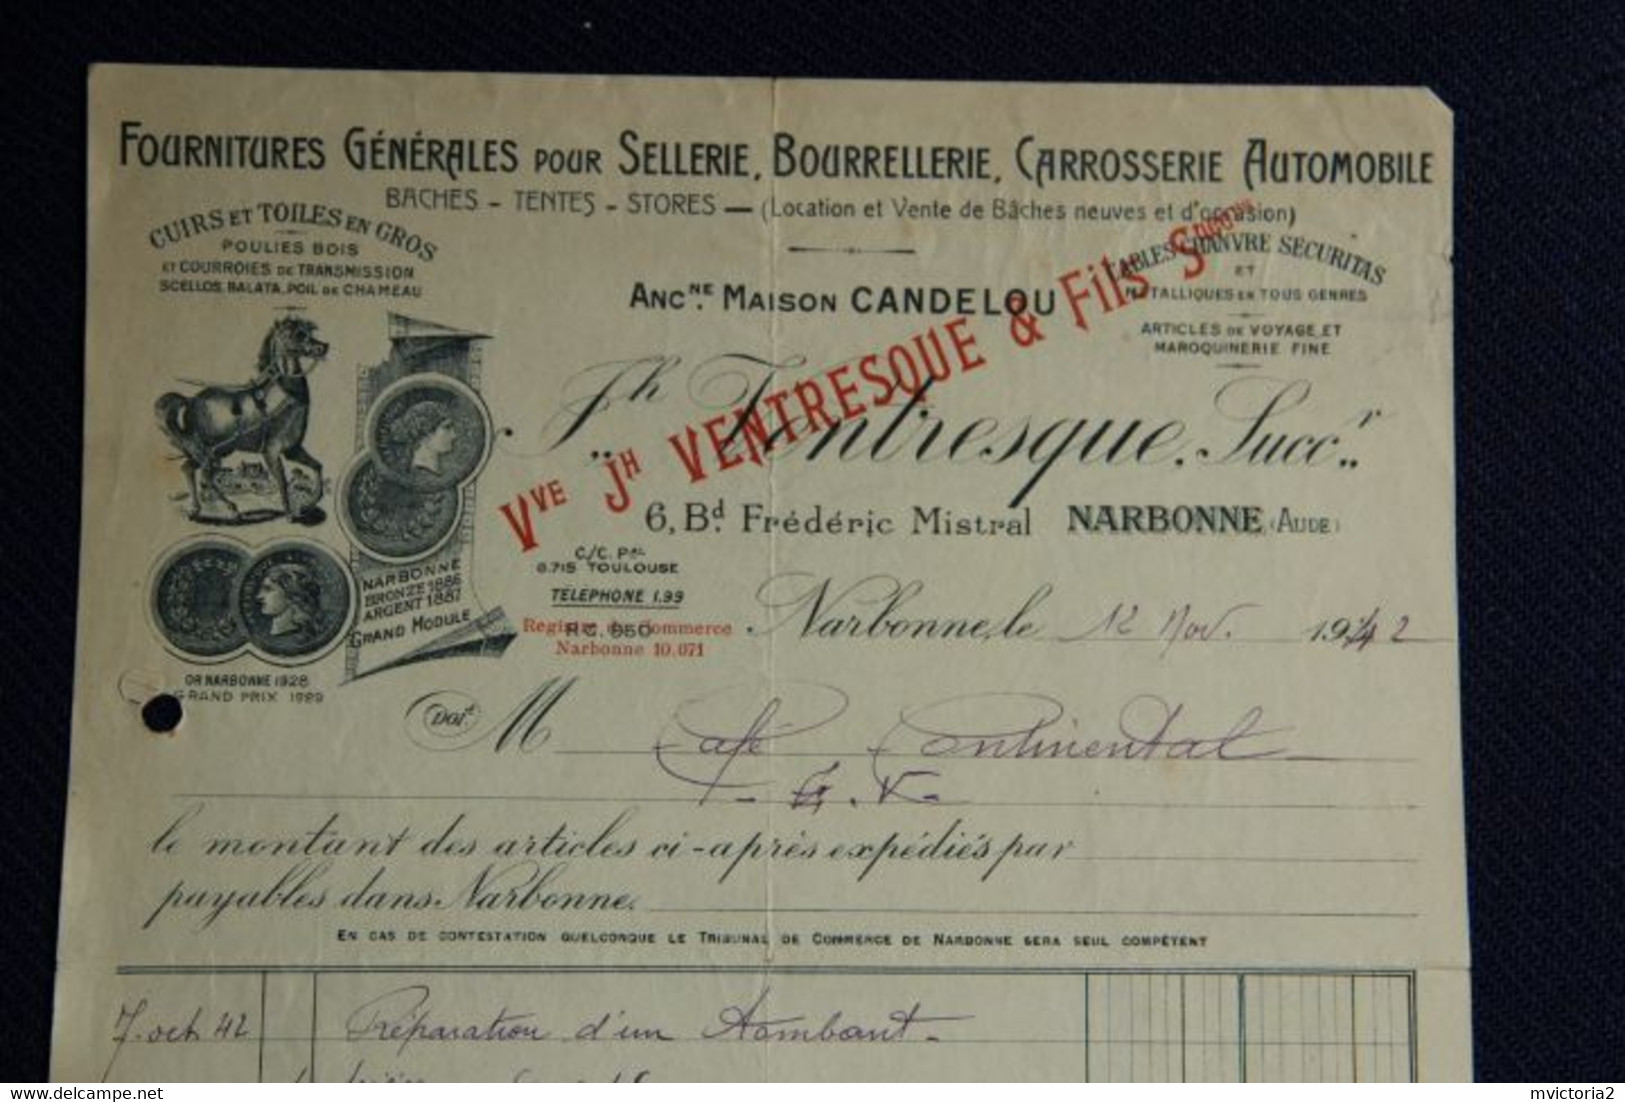 FOURNITURES GÉNÉRALES POUR SELLERIE, BOURRELLERIE, CARROSSERIE AUTOMOBILE
BACHES - TENTES - STORES — (Location et Vente de Bâches neuves et d'occasion)
CUIRS ET TOILES EN GROS
POULIES BOIS
ET COURROIES DE TRANSMISSION
SCELLOS, BALATA, POIL DE CHAMEAU
CABLES CHANVRE SECURITAS
ET
METALLIQUES EN TOUS GENRES
ARTICLES DE VOYAGE ET
MAROQUINERIE FINE
ANC.NE MAISON CANDELOU
Jh Ventresque, Succr
Vve JH VENTRESQUE & Fils
6, Bd Frédéric Mistral NARBONNE (AUDE)
NARBONNE
BRONZE 1886
ARGENT 1887
GRAND MODULE
OR NARBONNE 1928
GRAND PRIX 1929
C/C. Pal
8.715 TOULOUSE
TÉLÉPHONE 1.99
R.C. 950
Registre du Commerce
Narbonne 10.071
Narbonne, le 12 Nov. 1942
DOIt M Café Continental
le montant des articles ci-après expédiés par
payables dans Narbonne.
EN CAS DE CONTESTATION QUELCONQUE LE TRIBUNAL DE COMMERCE DE NARBONNE SERA SEUL COMPÉTENT
7. oct. 42 Réparation d'un
delcampe.net
mvictoria2